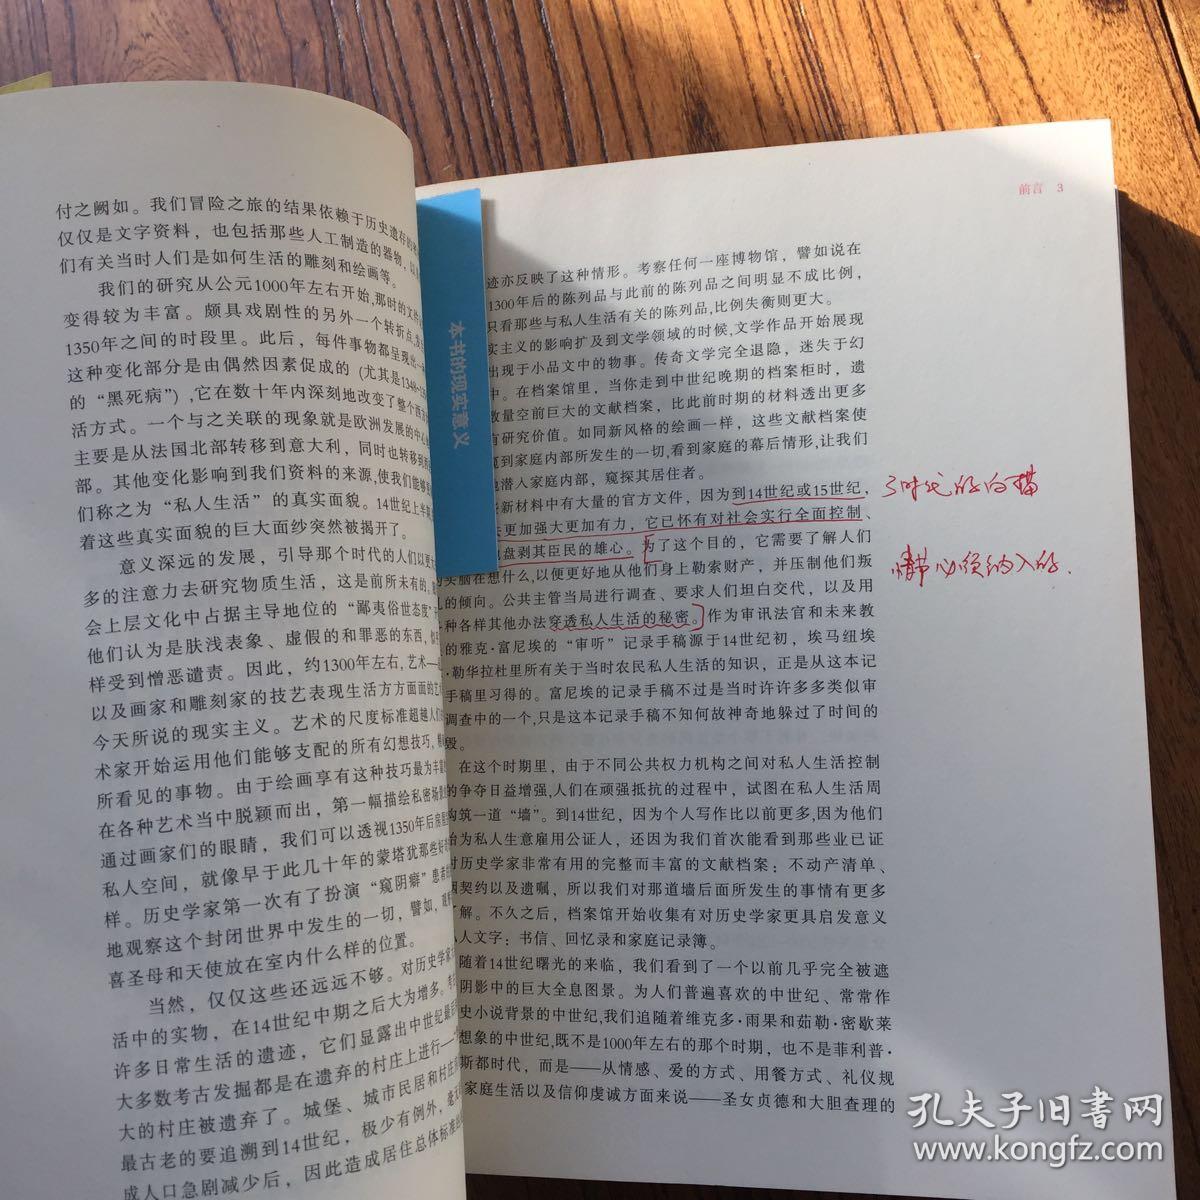 付之阙如。我们冒险之旅的结果依赖于历史遗存的
仅仅是文字资料，也包括那些人工制造的器物，以
们有关当时人们是如何生活的雕刻和绘画等。
我们的研究从公元1000年左右开始,那时的文
变得较为丰富。颇具戏剧性的另外一个转折点,
1350年之间的时段里。此后，每件事物都呈现出一
这种变化部分是由偶然因素促成的 (尤其是1348~
的“黑死病”) ,它在数十年内深刻地改变了整个西
活方式。一个与之关联的现象就是欧洲发展的中心
主要是从法国北部转移到意大利，同时也转移到
部。其他变化影响到我们资料的来源,使我们能够
们称之为“私人生活”的真实面貌。14世纪上半
着这些真实面貌的巨大面纱突然被揭开了。
意义深远的发展，引导那个时代的人们以更
多的注意力去研究物质生活，这是前所未有的。
会上层文化中占据主导地位的“鄙夷俗世态度”
他们认为是肤浅表象、虚假的和罪恶的东西，
样受到憎恶谴责。因此，约1300年左右,艺术—
以及画家和雕刻家的技艺表现生活方方面面的
今天所说的现实主义。艺术的尺度标准超越人们
术家开始运用他们能够支配的所有幻想技巧，
所看见的事物。由于绘画享有这种技巧最为丰富
在各种艺术当中脱颖而出，第一幅描绘私密场景
通过画家们的眼睛，我们可以透视1350年后房屋
私人空间，就像早于此几十年的蒙塔犹那些好奇
样。历史学家第一次有了扮演“窥阴癖”患者
地观察这个封闭世界中发生的一切，譬如，
喜圣母和天使放在室内什么样的位置。
当然，仅仅这些还远远不够。对历史学家
活中的实物，在14世纪中期之后大为增多。考
许多日常生活的遗迹，它们显露出中世纪最后
大多数考古发掘都是在遗弃的村庄上进行—
大的村庄被遗弃了。城堡、城市民居和村庄
最古老的要追溯到14世纪，极少有例外，毫无
成人口急剧减少后，因此造成居住总体标准
本书的现实意义
前言 3
迹亦反映了这种情形。考察任何一座博物馆，譬如说在
1300年后的陈列品与此前的陈列品之间明显不成比例，
只看那些与私人生活有关的陈列品,比例失衡则更大。
实主义的影响扩及到文学领域的时候,文学作品开始展现
出现于小品文中的物事。传奇文学完全退隐，迷失于幻
中。在档案馆里，当你走到中世纪晚期的档案柜时，遗
数量空前巨大的文献档案，比此前时期的材料透出更多
有研究价值。如同新风格的绘画一样，这些文献档案使
窥到家庭内部所发生的一切,看到家庭的幕后情形,让我们
地潜入家庭内部，窥探其居住者。
些新材料中有大量的官方文件，因为到14世纪或15世纪，
去更加强大更加有力，它已怀有对社会实行全面控制、
地盘剥其臣民的雄心。为了这个目的，它需要了解人们
的头脑在想什么,以便更好地从他们身上勒索财产，并压制他们叛
乱的倾向。公共主管当局进行调查、要求人们坦白交代，以及用
种各样其他办法穿透私人生活的秘密。作为审讯法官和未来教
的雅克·富尼埃的“审听”记录手稿源于14世纪初，埃马纽埃
·勒华拉杜里所有关于当时农民私人生活的知识，正是从这本记
手稿里习得的。富尼埃的记录手稿不过是当时许许多多类似审
调查中的一个,只是这本记录手稿不知何故神奇地躲过了时间的
毁。
在这个时期里，由于不同公共权力机构之间对私人生活控制
的争夺日益增强,人们在顽强抵抗的过程中，试图在私人生活周
构筑一道“墙”。到14世纪，因为个人写作比以前更多,因为他们
台为私人生意雇用公证人，还因为我们首次能看到那些业已证
对历史学家非常有用的完整而丰富的文献档案：不动产清单、
姻契约以及遗嘱，所以我们对那道墙后面所发生的事情有更多
了解。不久之后，档案馆开始收集有对历史学家更具启发意义
私人文字：书信、回忆录和家庭记录簿。
随着14世纪曙光的来临，我们看到了一个以前几乎完全被遮
阴影中的巨大全息图景。为人们普遍喜欢的中世纪、常常作
史小说背景的中世纪,我们追随着维克多·雨果和茹勒·密歇莱
想象的中世纪,既不是1000年左右的那个时期，也不是菲利普·
斯都时代，而是——从情感、爱的方式、用餐方式、礼仪规
家庭生活以及信仰虔诚方面来说——圣女贞德和大胆查理的
时代的白描
情节必须纳入的.
孔夫子旧书网
www.kongfz.com